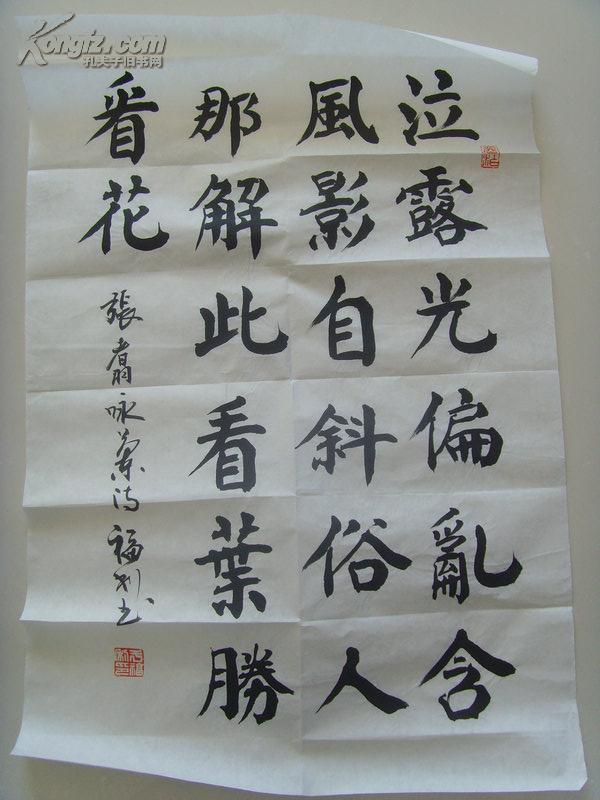 泣露光偏亂含
風影自斜俗人
那解此看葉勝
看花
張羽咏蘭詩 福利书
Kongfz.com
孔夫子旧书网